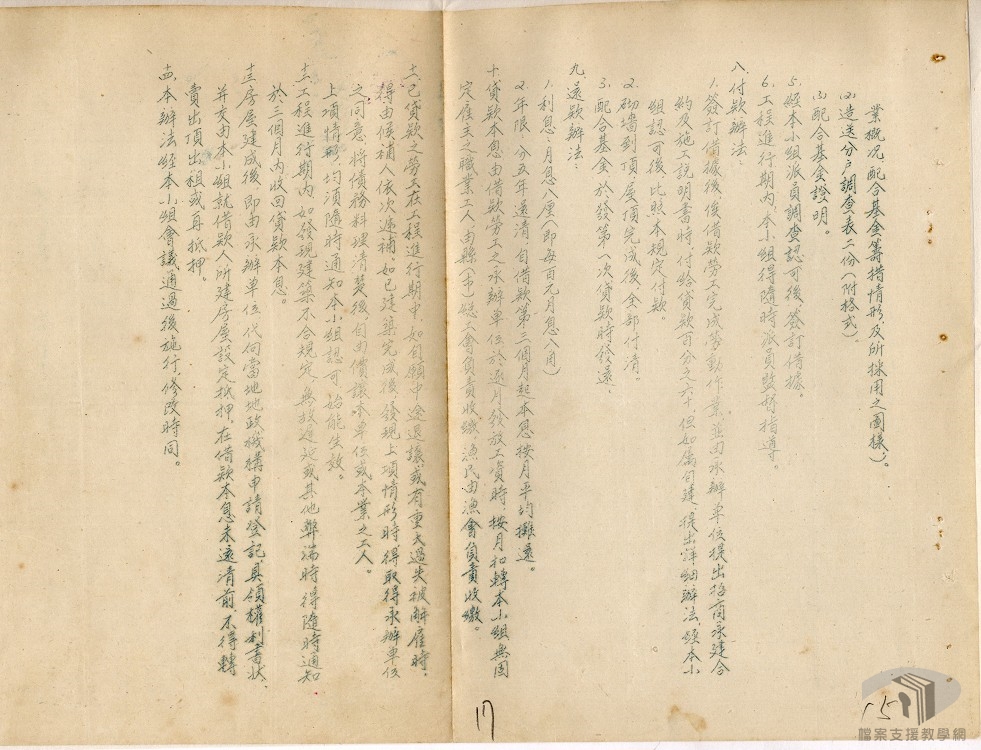 業概况、配合基金籌措情形、及所採用之圖樣)。
(2)造送分戶調查表二份(附格式)。
(3)配合基金證明。
5.經本小組派員調查認可後、簽訂借據。
6.工程進行期內、本小組得隨時派員監督指導。
八、付款辦法:
1.簽訂借據後、俟借款勞工完成勞動作業、並由承辦單位提出招商承建合
約及施工說明書時、付給貸款百分之六十、但如屬自建、提出詳細辦法、經本小
組認可後、比照本規定付款。
2.砌墻到頂、屋頂完成後、全部付清。
3.配合基金於發第一次貸款時發還。
九、還款辦法:
1.利息:月息八厘(即每百元月息八角)
2.年限:分五年還清、自借款第三個月起本息按月平均攤還。
十、貸款本息由借款勞工之承辦單位於逐月發放工資時、按月扣轉本小組無固
定雇主之職業工人由縣(市)總工會負責收繳、漁民由漁會負責收繳。
十一、已貸款之勞工在工程進行期中、如自願中途退讓、或有重大過失被解雇時、
得由候補人依次遞補、如已建築完成後、發現上項情形時、得取得承辦單位
之同意、將債務料理清楚後、自由價讓本單位或本業之工人。
上項情形、均須隨時通知本小組認可、始能生效。
十二、工程進行期內、如發現建築不合規定、無故遲延或其他弊端時、得隨時通知
於三個月內收回貸款本息。
十三、房屋建成後、即由承辦單位代向當地地政機構申請登記、具領權利書狀、
并交由本小組就借款人所建房屋設定抵押、在借款本息未還清前、不得轉
賣出頂出租或再抵押。
十四、本辦法經本小組會議通過後施行、修改時同。
17
15
檔案支援教學網